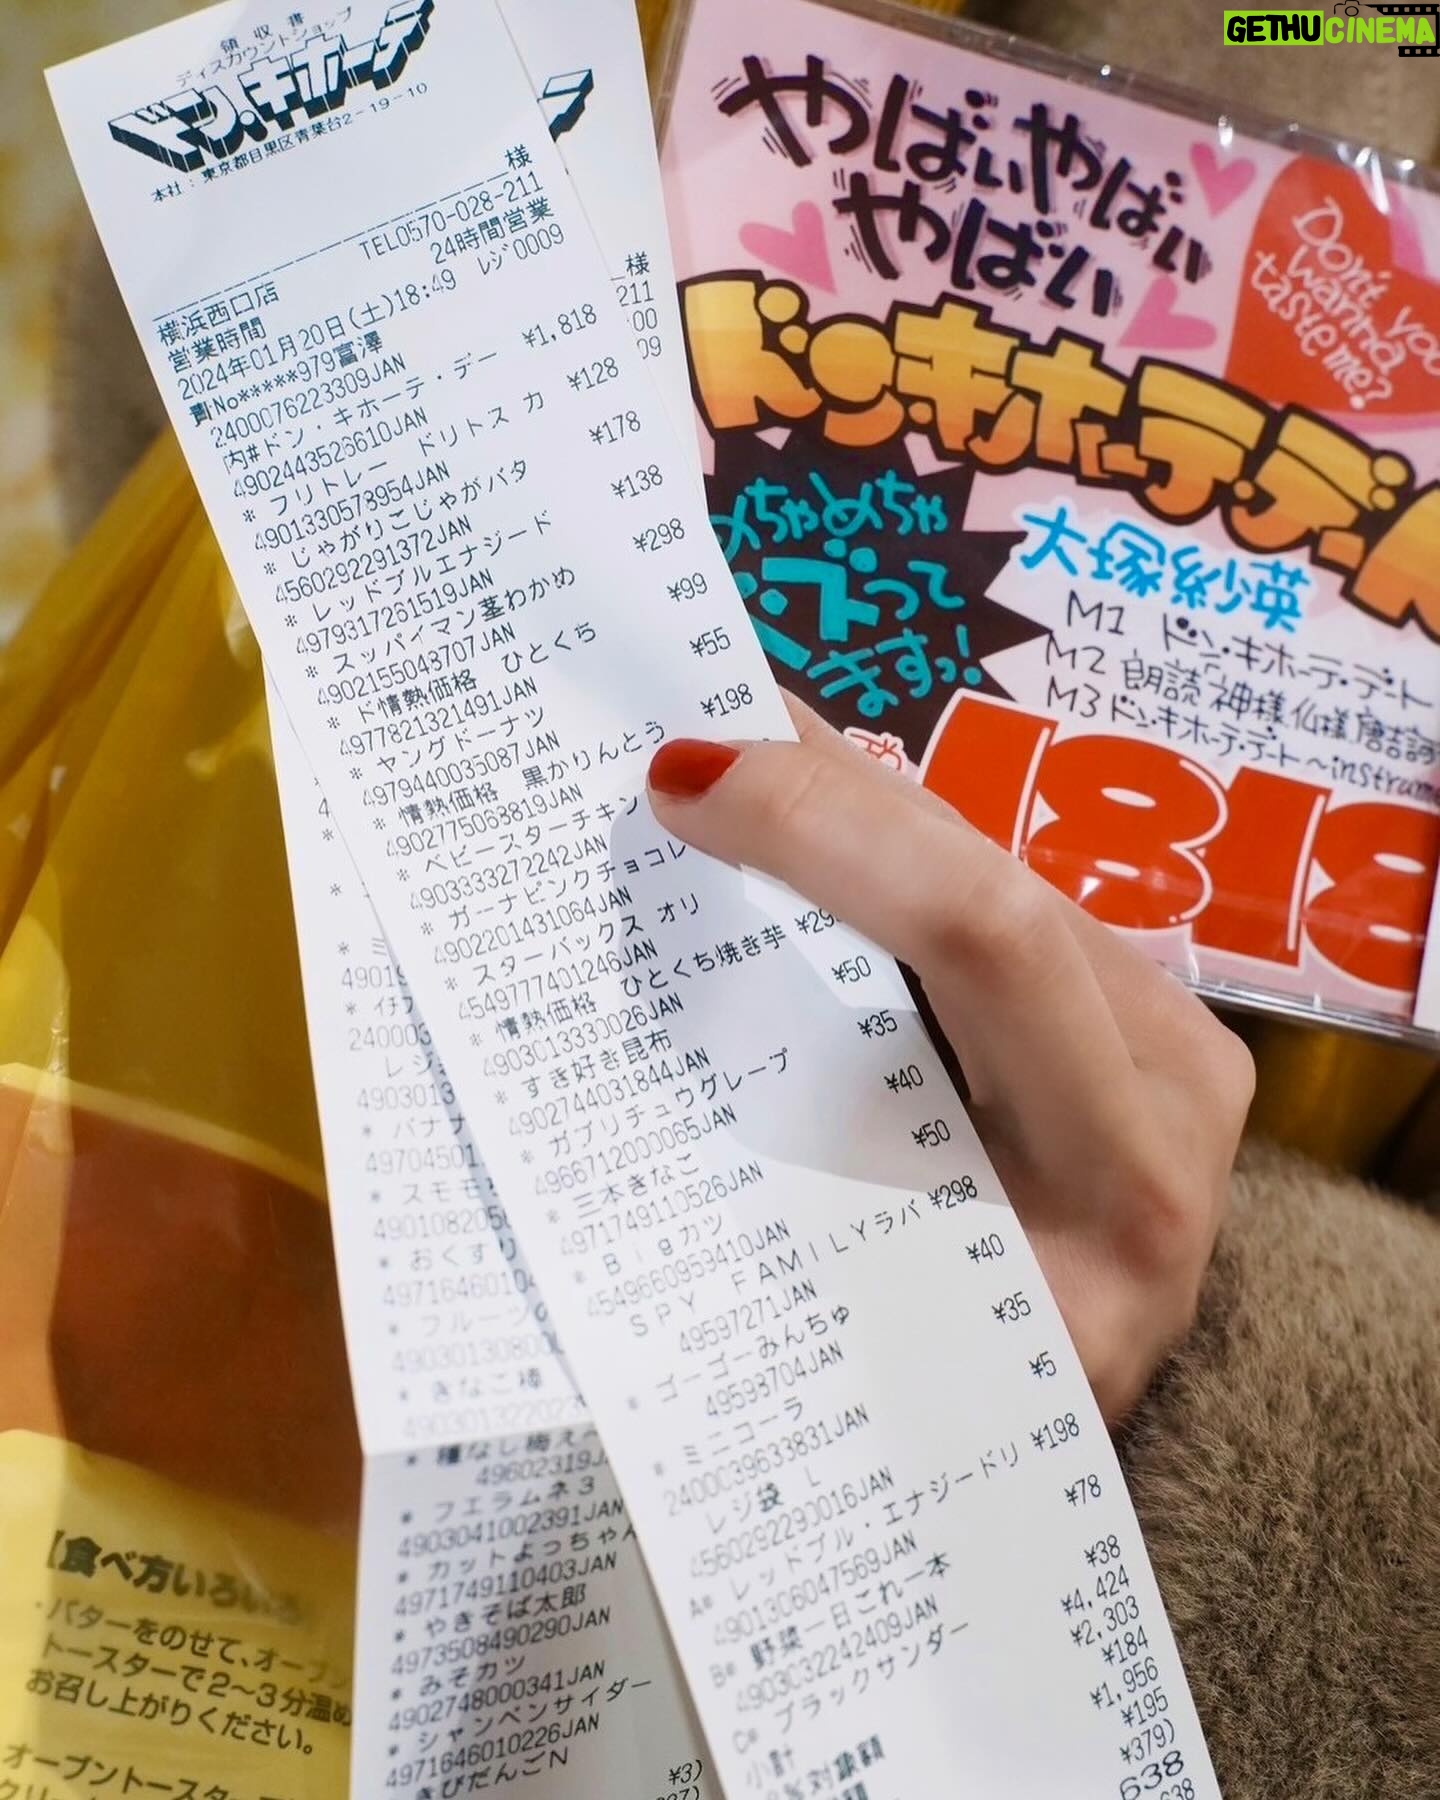 GETHUCINEMA
領収書
ディスカウントショップ
ドン.キホーテ
本社：東京都目黒区青葉台2-19-10
様
TEL0570-028-211
24時間営業
横浜西口店
営業時間
2024年01月20日(土)18:49 レジ0009
責No*****979富澤
2400076223309JAN
内#ドン・キホーテ・デー ¥1,818
4902443526610JAN
* フリトレー ドリトス カ ¥128
4901330578954JAN
* じゃがりこじゃがバタ ¥178
4560292291372JAN
* レッドブルエナジード ¥138
4979317261519JAN
* スッパイマン茎わかめ ¥298
4902155043707JAN
* ド情熱価格 ひとくち ¥99
4977821321491JAN
* ヤングドーナツ ¥55
4979440035087JAN
* 情熱価格 黒かりんとう ¥198
4902775063819JAN
* ベビースターチキン
4903333272242JAN
* ガーナピンクチョコレ
4902201431064JAN
* スターバックス オリ
4549777401246JAN
* 情熱価格 ひとくち焼き芋 ¥29
4903013330026JAN
* すき好き昆布 ¥50
4902744031844JAN
* ガブリチュウグレープ ¥35
4966712000065JAN
* 三本きなこ ¥40
4971749110526JAN
* Bigカツ ¥50
4549660959410JAN
SPY FAMILYラバ ¥298
49597271JAN
* ゴーゴーみんちゅ ¥40
49593704JAN
* ミニコーラ ¥35
2400039633831JAN
レジ袋 L ¥5
4560292290016JAN
A* レッドブル・エナジードリ ¥198
4901306047569JAN
B* 野菜一日これ一本 ¥78
4903032242409JAN
C* ブラックサンダー ¥38
小計 ¥4,424
8%対象額 ¥2,303
¥184
¥1,956
¥195
¥379)
638
638
様
211
00
09
* ミ
49019
* イチ
240003
レジ
4903013
* バナナ
49704501
* スモモ
4901082050
* おくすり
4971646010
* フルーツの
490301308000
* きなこ棒
* 種なし梅
49602319J
* フエラムネ3
4903041002391JAN
* カットよっちゃん
4971749110403JAN
* やきそば太郎
4973508490290JAN
* みそカツ
4902748000341JAN
* シャンペンサイダー
4971646010226JAN
* きびだんごN
¥3)
やばぃやばぃ
やばい
Don't you
wanna
taste me?
ドン.キホーテ.デー
めちゃめちゃ
大塚紗英
M1 ドン・キホーテ・デート
M2 朗読 神様仏様唐吉訶
M3 ドン・キホーテ・デート〜instrume
1818
【食べ方いろいろ
・バターをのせて、オーブン
トースターで2〜3分温め
お召し上がりください。
オーブントースター